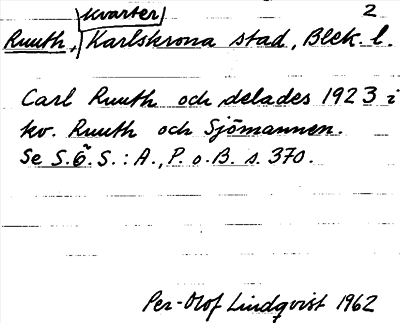 kvarter 2
Ruuth, Karlskrona stad, Blek. l.
Carl Ruuth och delades 1923 i
kv. Ruuth och Sjömannen.
Se S.Ö.S.: A., P. o. B. s. 370.
Per-Olof Lindqvist 1962